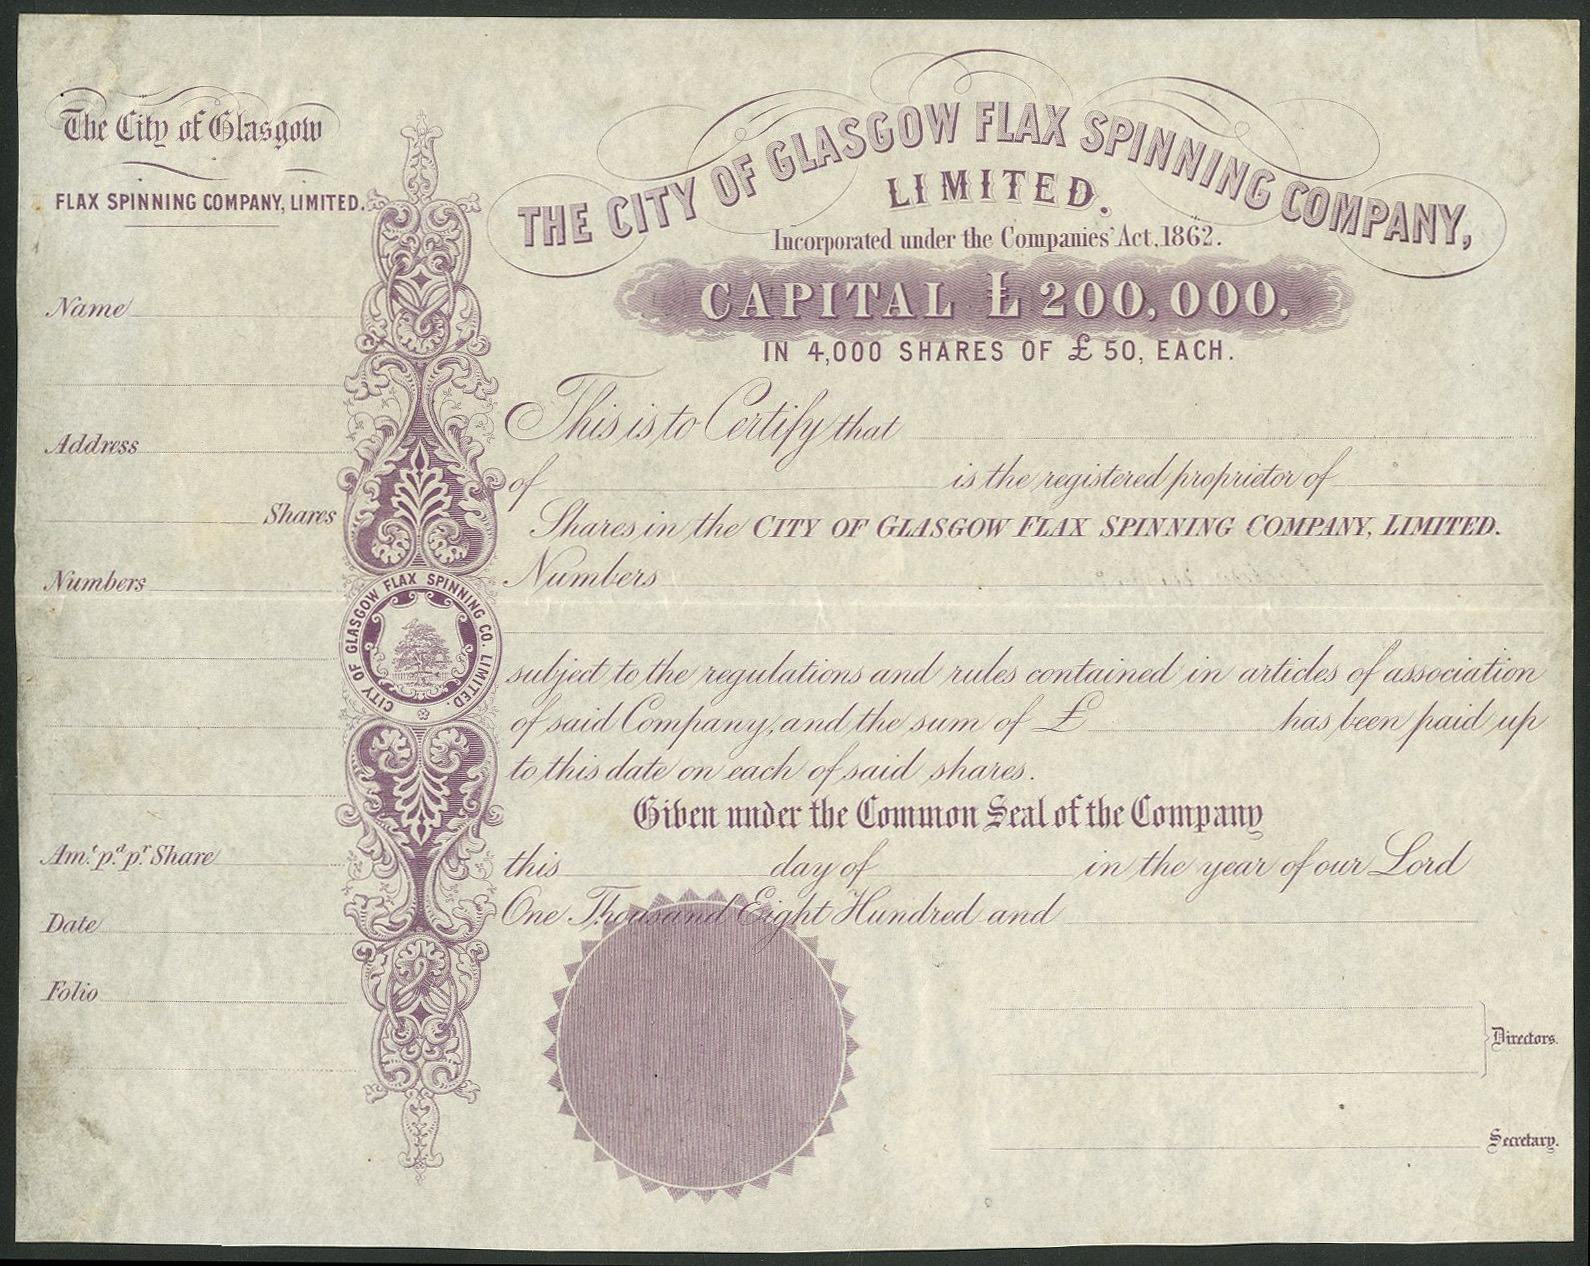 The City of Glasgow
FLAX SPINNING COMPANY, LIMITED.
Name
Address
Shares
Numbers
Am.t p.d p.r Share
Date
Folio
CITY OF GLASGOW FLAX SPINNING CO. LIMITED.
THE CITY OF GLASGOW FLAX SPINNING COMPANY,
LIMITED.
Incorporated under the Companies' Act, 1862.
CAPITAL £200,000.
IN 4,000 SHARES OF £50, EACH.
This is to Certify that
of is the registered proprietor of
Shares in the CITY OF GLASGOW FLAX SPINNING COMPANY, LIMITED.
Numbers
subject to the regulations and rules contained in articles of association
of said Company, and the sum of £ has been paid up
to this date on each of said shares.
Given under the Common Seal of the Company
this day of in the year of our Lord
One Thousand Eight Hundred and
Directors.
Secretary.